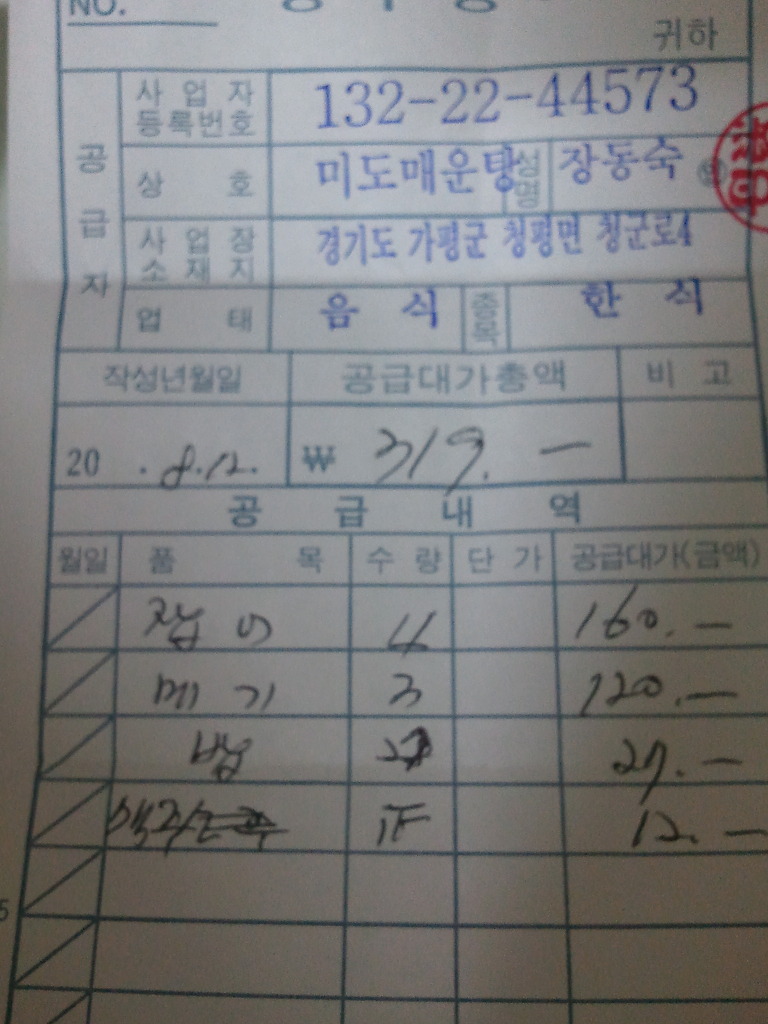 NO.
귀하
공급자
사업자등록번호 132-22-44573
상호 미도매운탕 성명 장동숙
사업장소재지 경기도 가평군 청평면 청군로4
업태 음식 종목 한식
작성년월일 공급대가총액 비고
20 . 8.12. ₩ 319. —
공급내역
월일 품목 수량 단가 공급대가(금액)
잡어 4 160. —
메기 3 120. —
밥 27. —
맥주 12. —
5